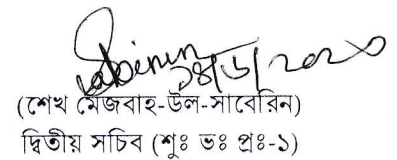 Sabirin
১৪/৬/২০২০
(শেখ মেজবাহ-উল-সাবেরিন)
দ্বিতীয় সচিব (শুঃ ভঃ প্রঃ-১)